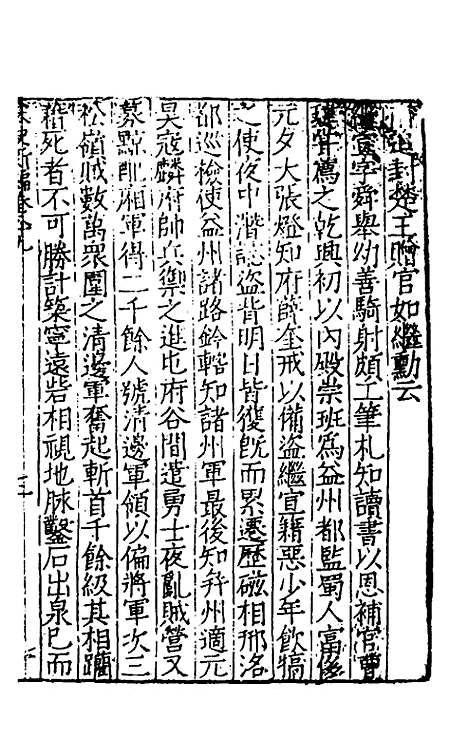 追封楚王贈官如繼勳云
繼宣字舜舉幼善騎射頗工筆札知讀書以恩補官曹
瑋等薦之乾興初以內殿崇班爲益州都監蜀人富侈
元夕大張燈知府薛奎戒以備盜繼宣籍惡少年飲犒
之使夜中潛誌盜背明日皆獲旣而累遷歷磁相邢洛
都巡檢使益州諸路鈐轄知諸州軍最後知并州適元
昊寇麟府帥兵禦之進屯府谷間遣勇士夜亂賊營又
募黥配廂軍得二千餘人號清邊軍領以偏將軍次三
松嶺賊數萬衆圍之清邊軍奮起斬首千餘級其相躪
藉死者不可勝計築寧遠砦相視地脉鑿石出泉已而